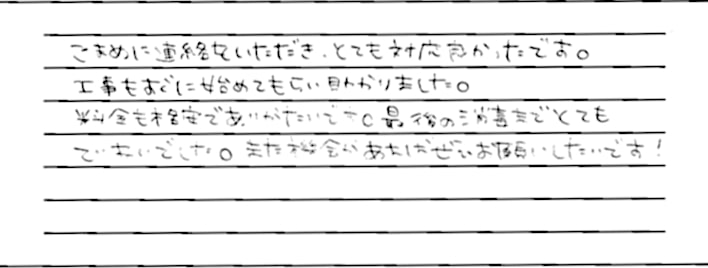 こまめに連絡をいただき、とても対応良かったです。
工事もすぐに始めてもらい助かりました。
料金も格安でありがたいです。最後の清書までとても
ていねいでした。また機会があればぜひお願いしたいです！